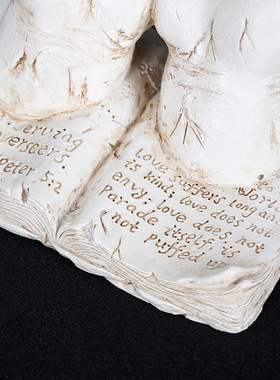 serving
overseers:
peter 5:2
work
Love suffers long and
is kind; love does not
envy; love does not
parade itself is
not puffed up